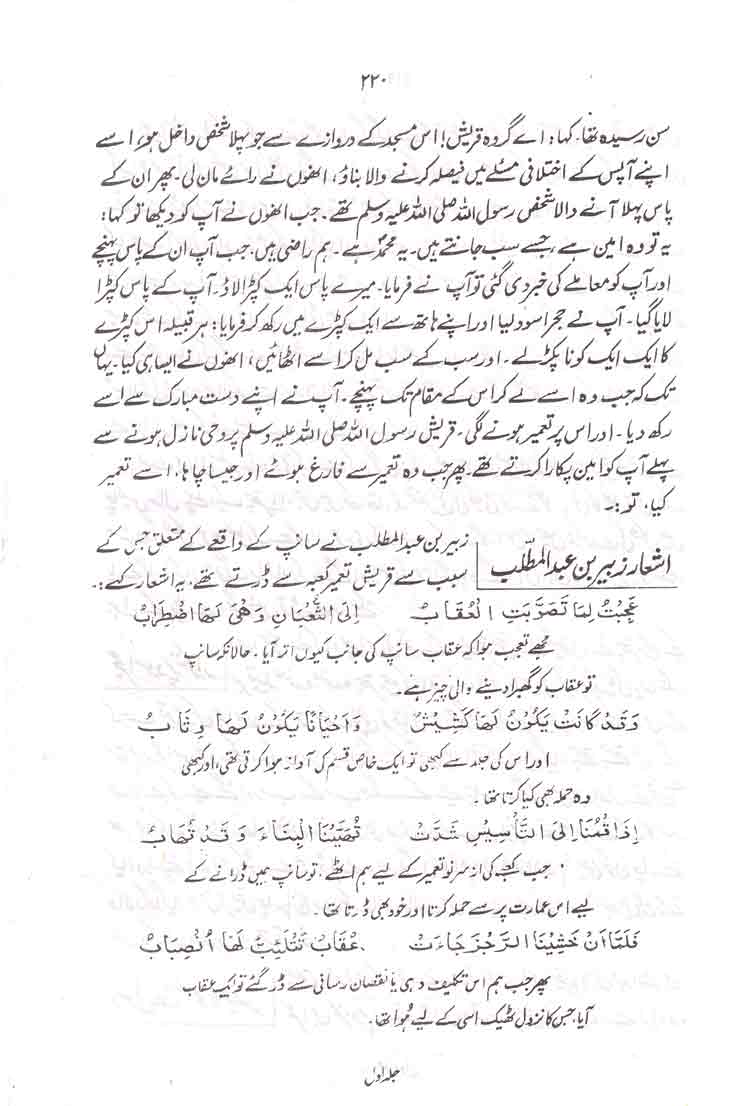 ۲۲۰
سن رسیدہ تھا۔ کہا: اے گروہ قریش! اس مسجد کے دروازے سے جو پہلا شخص داخل ہو، اسے
اپنے آپس کے اختلافی مسئلے میں فیصلہ کرنے والا بناؤ، انھوں نے رائے مان لی۔ پھر ان کے
پاس پہلا آنے والا شخص رسول اللہ صلی اللہ علیہ وسلم تھے۔ جب انھوں نے آپ کو دیکھا تو کہا:
یہ تو وہ امین ہے، جسے سب جانتے ہیں۔ یہ محمدؐ ہے۔ ہم راضی ہیں۔ جب آپ ان کے پاس پہنچے
اور آپ کو معاملے کی خبر دی گئی تو آپ نے فرمایا۔ میرے پاس ایک کپڑا لاؤ۔ آپ کے پاس کپڑا
لایا گیا۔ آپ نے حجر اسود لیا اور اپنے ہاتھ سے ایک کپڑے میں رکھ کر فرمایا: ہر قبیلہ اس کپڑے
کا ایک ایک کونا پکڑ لے۔ اور سب کے سب مل کر اسے اٹھائیں، انھوں نے ایسا ہی کیا۔ یہاں
تک کہ جب وہ اسے لے کر اس کے مقام تک پہنچے۔ آپ نے اپنے دست مبارک سے اسے
رکھ دیا۔ اور اس پر تعمیر ہونے لگی۔ قریش رسول اللہ صلی اللہ علیہ وسلم پر وحی نازل ہونے سے
پہلے آپ کو امین پکارا کرتے تھے۔ پھر جب وہ تعمیر سے فارغ ہوئے اور جیسا چاہا، اسے تعمیر
کیا، تو:۔
اشعار زبیر بن عبدالمطلّب
زبیر بن عبدالمطلب نے سانپ کے واقعے کے متعلق جس کے
سبب سے قریش تعمیر کعبہ سے ڈرتے تھے، یہ اشعار کہے:۔
عَجِبْتُ لِمَا تَصَوَّبَتِ الْعُقَابُ إِلَى الثُّعْبَانِ وَهْيَ لَهَا اضْطِرَابُ
مجھے تعجب ہوا کہ عقاب سانپ کی جانب کیوں اتر آیا۔ حالانکہ سانپ
تو عقاب کو گھبرا دینے والی چیز ہے۔
وَقَدْ كَانَتْ يَكُوْنُ لَهَا كَشِيْشٌ وَاَحْيَانًا يَكُوْنُ لَهَا وِثَابُ
اور اس کی جلد سے کبھی تو ایک خاص قسم کی آواز ہوا کرتی تھی، اور کبھی
وہ حملہ بھی کیا کرتا تھا۔
إِذَا قُمْنَا إِلَى التَّأْسِيْسِ شَدَّتْ تُهَيِّبُنَا الْبِنَاءَ وَقَدْ تُهَابُ
جب کعبے کی از سر نو تعمیر کے لیے ہم اٹھے، تو سانپ ہمیں ڈرانے کے
لیے اس عمارت پر سے حملہ کرتا اور خود بھی ڈرتا تھا۔
فَلَمَّا أَنْ خَشِيْنَا الرِّجْزَ جَاءَتْ عُقَابٌ تَتْلَئِبُّ لَهَا انْصِبَابُ
پھر جب ہم اس تکلیف دہی یا نقصان رسانی سے ڈر گئے تو ایک عقاب
آیا، جس کا نزول ٹھیک اسی کے لیے ہُوا تھا۔
جلد اول